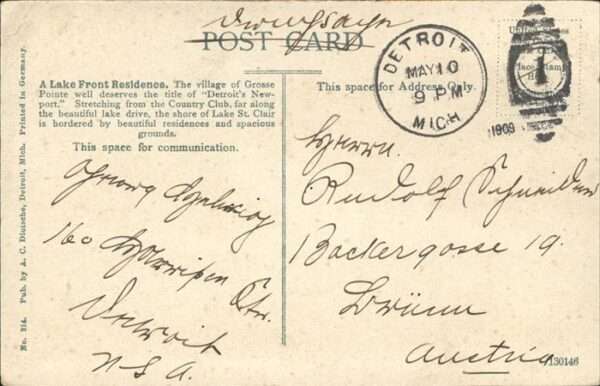 POST CARD
A Lake Front Residence. The village of Grosse
Pointe well deserves the title of "Detroit's New-
port." Stretching from the Country Club, far along
the beautiful lake drive, the shore of Lake St. Clair
is bordered by beautiful residences and spacious
grounds.
This space for communication.
Georg
160
Detroit
U.S.A.
No. 214. Pub. by A. C. Dietsche, Detroit, Mich. Printed in Germany.
DETROIT
MAY 10
9 PM
MICH
1909
1
This space for Address Only.
Herrn
Rudolf Schneider
Backergasse 19.
Brünn
Austria
130146